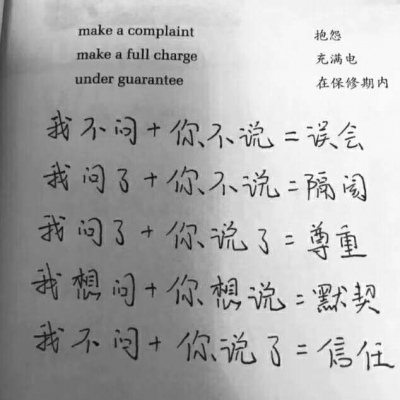 make a complaint 抱怨
make a full charge 充满电
under guarantee 在保修期内
我不问+你不说=误会
我问了+你不说=隔阂
我问了+你说了=尊重
我想问+你想说=默契
我不问+你说了=信任